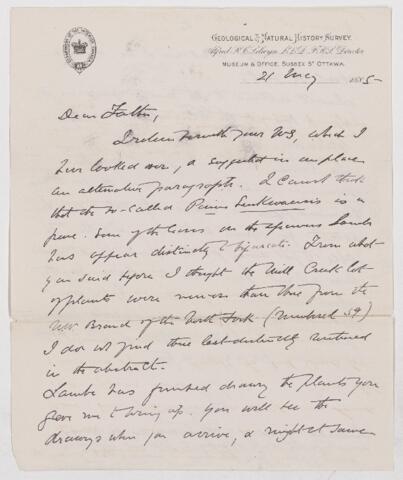 GEOLOGICAL & NATURAL HISTORY SURVEY.
Alfred R. C. Selwyn, L.L.D., F.R.S., Director
MUSEUM & OFFICE, SUSSEX ST OTTAWA.
21 May 1885
Dear Father,
I return herewith your MS, which I
have looked over, & suggested in one place
an alternative paragraph. I cannot think
that the so-called Pinus Suskwaensis is a
pine. Some of the leaves on the specimens Lambe
has appear distinctly bifurcate. From what
you said before I thought the Mill Creek lot
of plants were newer than those from the
NW Branch of the North Fork (numbered 59)
I do not find these last distinctly mentioned
in the abstract.
Lambe has finished drawing the plants you
gave me to bring up. You will see the
drawings when you arrive, & might save